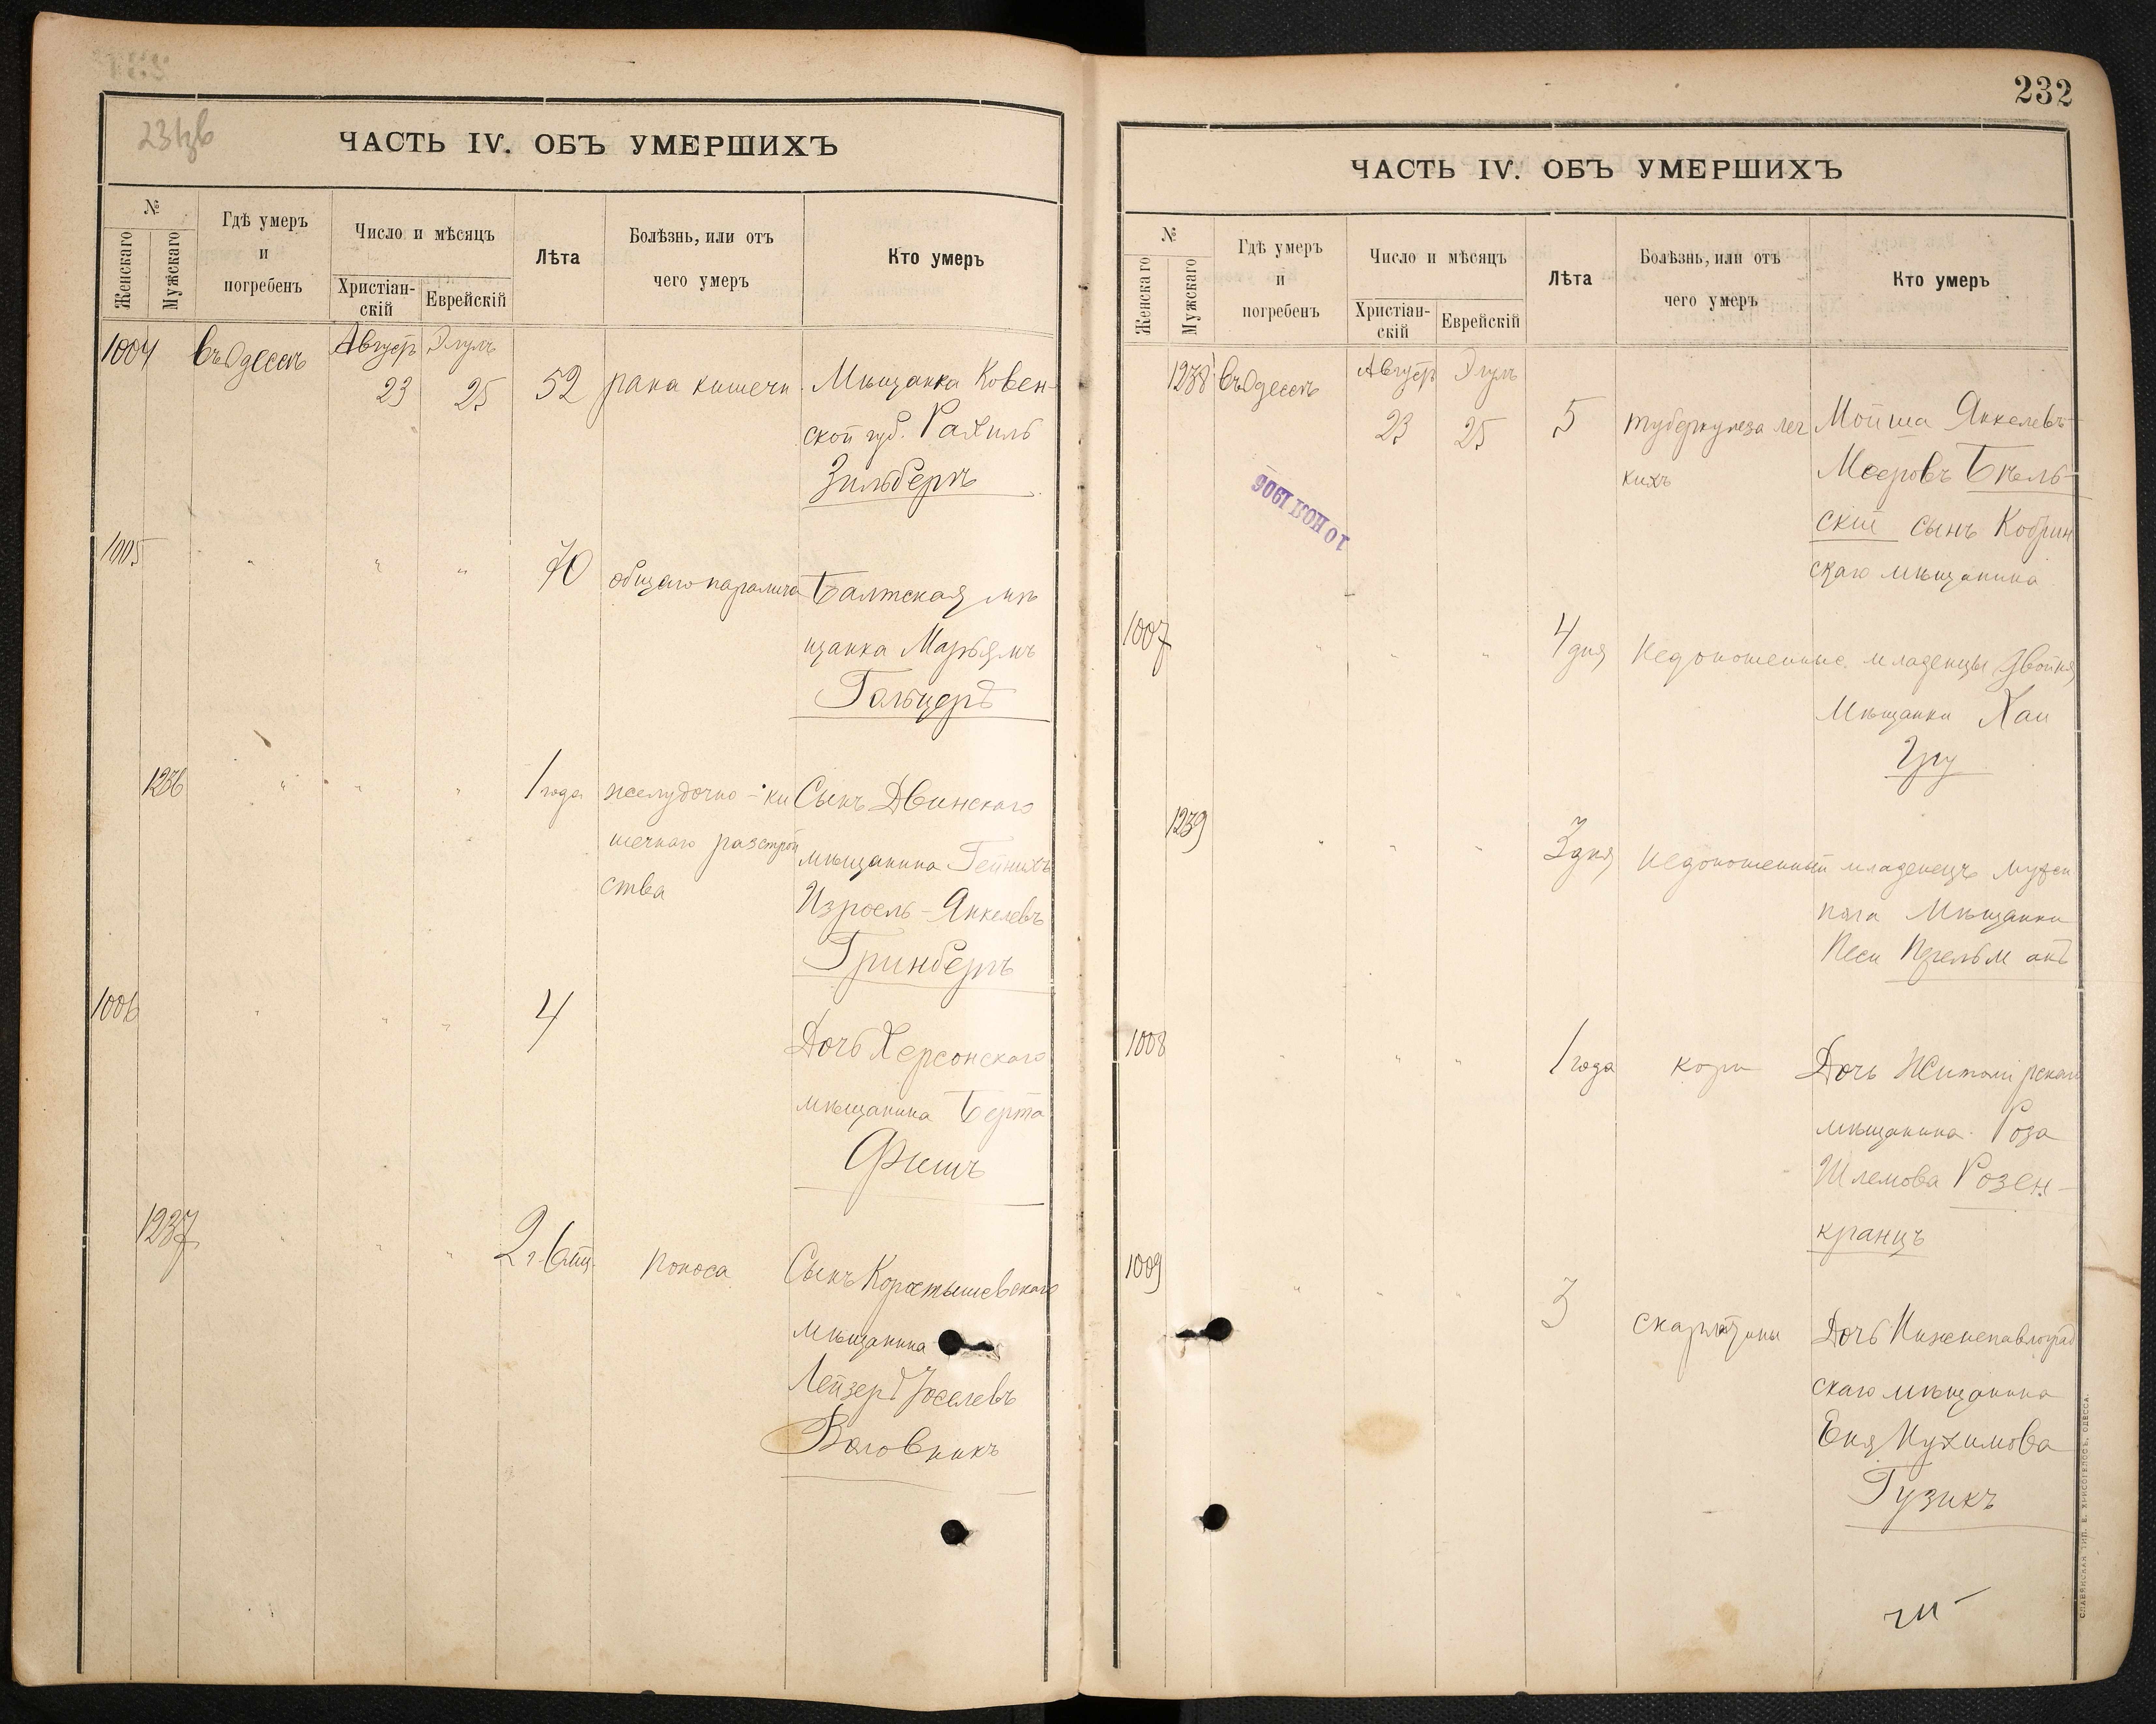 231зв
ЧАСТЬ IV. ОБЪ УМЕРШИХЪ
№
Женскаго
Мужскаго
Гдѣ умеръ
и
погребенъ
Число и мѣсяцъ
Христіан-
скій
Еврейскій
Лѣта
Болѣзнь, или отъ
чего умеръ
Кто умеръ
1004 въ Одессѣ Августъ Элулъ
23 25 52 рака кишечн. Мѣщанка Ковен-
ской губ. Рахиль
Зильбергъ
1005 " " " 70 общаго паралича Балтская мѣ
щанка Марьямъ
Гольцеръ
1236 " " " 1 года желудочно-ки Сынъ Двинскаго
шечнаго разстрой мѣщанина Гейнихъ
ства Израель-Янкелевъ
Гринбергъ
1006 " " " 4 Дочь Херсонскаго
мѣщанина Берта
Фишъ
1237 " " " 2 г. 6 мц. поноса Сынъ Коростышевскаго
мѣщанина
Лейзеръ Іоселевъ
Воловникъ
232
ЧАСТЬ IV. ОБЪ УМЕРШИХЪ
№
Женскаго
Мужскаго
Гдѣ умеръ
и
погребенъ
Число и мѣсяцъ
Христіан-
скій
Еврейскій
Лѣта
Болѣзнь, или отъ
чего умеръ
Кто умеръ
1238 въ Одессѣ Августъ Элулъ
23 25 5 туберкулеза лег Мойша Янкелевъ-
кихъ Мееровъ Бѣль-
скій сынъ Кобрин
скаго мѣщанина
10 НОЯ 1906
1007 " " " 4 дня Недоношенные младенцы двойня
Мѣщанки Хаи
1239 " " " 3 дня Недоношенный младенецъ мужск
пола Мѣщанки
Песи
1008 " " " 1 года кори Дочь Житомирскаго
мѣщанина Роза
Шлемова Розен-
кранцъ
1009 " " " 3 скарлатины Дочь
скаго мѣщанина
Еня Нухимова
Гузикъ
СЛАВЯНСКАЯ ТИП. Е. ХРИСОГЕЛОСЪ, ОДЕССА.